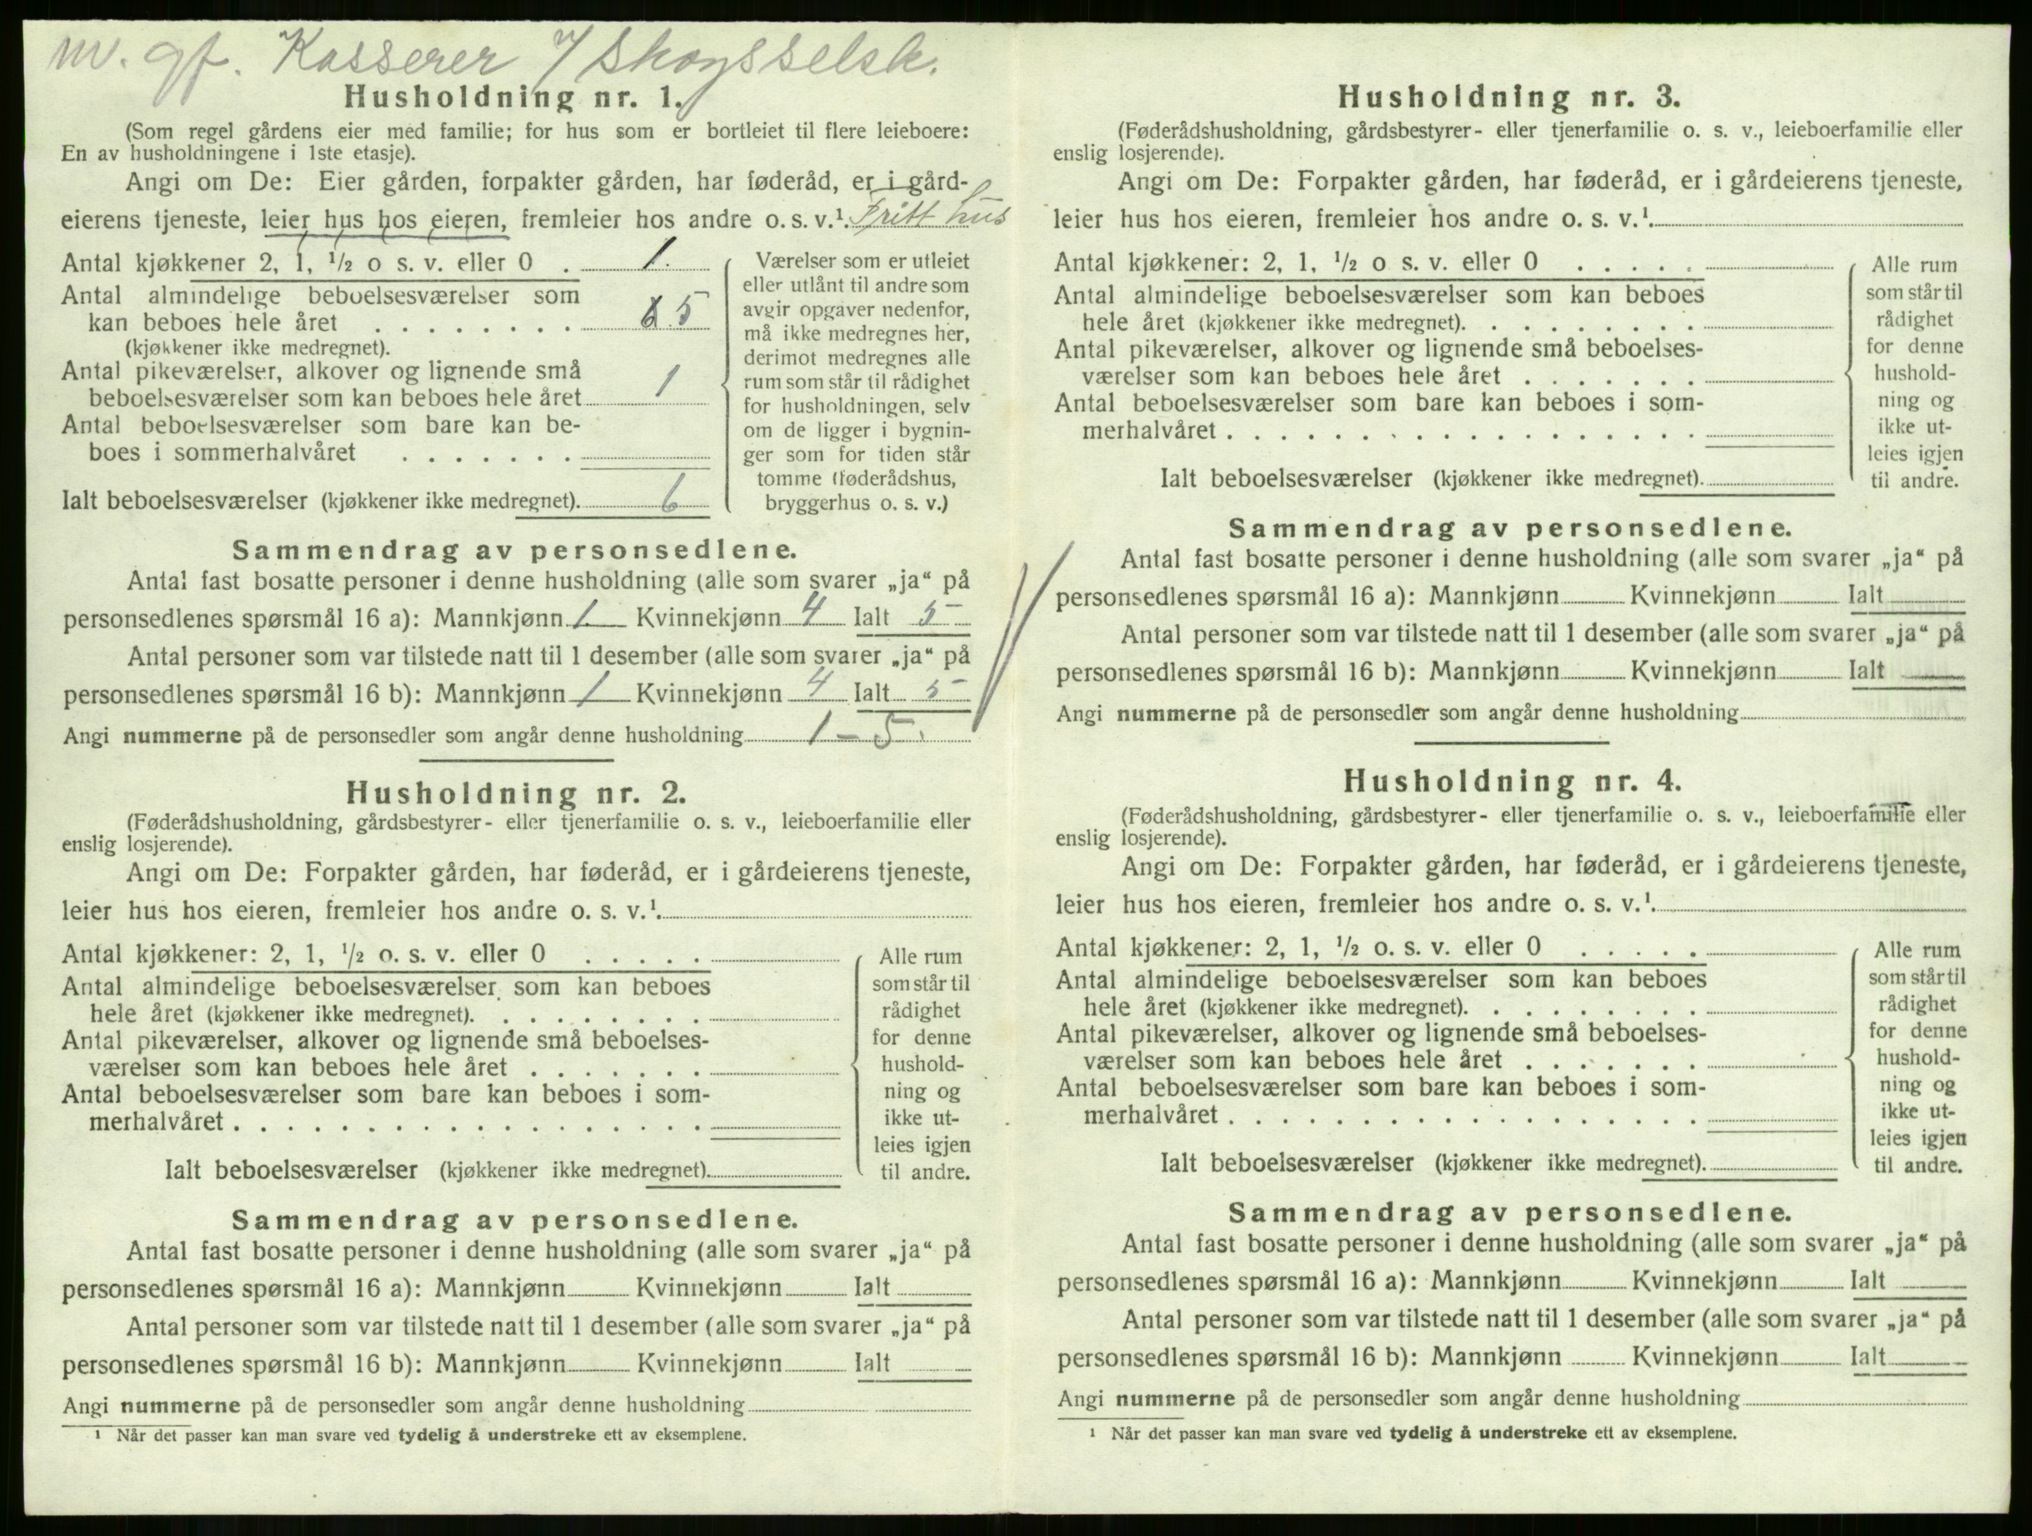 nv. gf. Kasserer i/ Skogsselsk.
Husholdning nr. 1.
(Som regel gårdens eier med familie; for hus som er bortleiet til flere leieboere:
En av husholdningene i 1ste etasje).
Angi om De: Eier gården, forpakter gården, har føderåd, er i gård-
eierens tjeneste, leier hus hos eieren, fremleier hos andre o. s. v.¹ Fritt hus
Antal kjøkkener 2, 1, ½ o s. v. eller 0 . 1.
Antal almindelige beboelsesværelser som
kan beboes hele året . . . . . . . . 5
(kjøkkener ikke medregnet).
Antal pikeværelser, alkover og lignende små
beboelsesværelser som kan beboes hele året 1
Antal beboelsesværelser som bare kan be-
boes i sommerhalvåret . . . . . . .
Ialt beboelsesværelser (kjøkkener ikke medregnet). 6
Værelser som er utleiet
eller utlånt til andre som
avgir opgaver nedenfor,
må ikke medregnes her,
derimot medregnes alle
rum som står til rådighet
for husholdningen, selv
om de ligger i bygnin-
ger som for tiden står
tomme (føderådshus,
bryggerhus o. s. v.)
Sammendrag av personsedlene.
Antal fast bosatte personer i denne husholdning (alle som svarer „ja“ på
personsedlenes spørsmål 16 a): Mannkjønn 1 Kvinnekjønn 4 Ialt 5
Antal personer som var tilstede natt til 1 desember (alle som svarer „ja“ på
personsedlenes spørsmål 16 b): Mannkjønn 1 Kvinnekjønn 4 Ialt 5
Angi nummerne på de personsedler som angår denne husholdning 1 - 5.
Husholdning nr. 2.
(Føderådshusholdning, gårdsbestyrer- eller tjenerfamilie o. s. v., leieboerfamilie eller
enslig losjerende).
Angi om De: Forpakter gården, har føderåd, er i gårdeierens tjeneste,
leier hus hos eieren, fremleier hos andre o. s. v.¹
Antal kjøkkener: 2, 1, ½ o. s. v. eller 0 . . . . .
Antal almindelige beboelsesværelser som kan beboes
hele året (kjøkkener ikke medregnet). . . . . . . . .
Antal pikeværelser, alkover og lignende små beboelses-
værelser som kan beboes hele året . . . . . . .
Antal beboelsesværelser som bare kan beboes i som-
merhalvåret . . . . . . . . . . . . . . . . . .
Ialt beboelsesværelser (kjøkkener ikke medregnet).
Alle rum
som står til
rådighet
for denne
hushold-
ning og
ikke ut-
leies igjen
til andre.
Sammendrag av personsedlene.
Antal fast bosatte personer i denne husholdning (alle som svarer „ja“ på
personsedlenes spørsmål 16 a): Mannkjønn Kvinnekjønn Ialt
Antal personer som var tilstede natt til 1 desember (alle som svarer „ja“ på
personsedlenes spørsmål 16 b): Mannkjønn Kvinnekjønn Ialt
Angi nummerne på de personsedler som angår denne husholdning
¹ Når det passer kan man svare ved tydelig å understreke ett av eksemplene.
Husholdning nr. 3.
(Føderådshusholdning, gårdsbestyrer- eller tjenerfamilie o. s. v., leieboerfamilie eller
enslig losjerende).
Angi om De: Forpakter gården, har føderåd, er i gårdeierens tjeneste,
leier hus hos eieren, fremleier hos andre o. s. v.¹
Antal kjøkkener: 2, 1, ½ o s. v. eller 0 . . . . .
Antal almindelige beboelsesværelser som kan beboes
hele året (kjøkkener ikke medregnet). . . . . . . . .
Antal pikeværelser, alkover og lignende små beboelses-
værelser som kan beboes hele året . . . . . . .
Antal beboelsesværelser som bare kan beboes i som-
merhalvåret . . . . . . . . . . . . . . . . . .
Ialt beboelsesværelser (kjøkkener ikke medregnet).
Alle rum
som står til
rådighet
for denne
hushold-
ning og
ikke ut-
leies igjen
til andre.
Sammendrag av personsedlene.
Antal fast bosatte personer i denne husholdning (alle som svarer „ja“ på
personsedlenes spørsmål 16 a): Mannkjønn Kvinnekjønn Ialt
Antal personer som var tilstede natt til 1 desember (alle som svarer „ja“ på
personsedlenes spørsmål 16 b): Mannkjønn Kvinnekjønn Ialt
Angi nummerne på de personsedler som angår denne husholdning
Husholdning nr. 4.
(Føderådshusholdning, gårdsbestyrer- eller tjenerfamilie o. s. v., leieboerfamilie eller
enslig losjerende).
Angi om De: Forpakter gården, har føderåd, er i gårdeierens tjeneste,
leier hus hos eieren, fremleier hos andre o. s. v.¹
Antal kjøkkener: 2, 1, ½ o. s. v. eller 0 . . . . .
Antal almindelige beboelsesværelser som kan beboes
hele året (kjøkkener ikke medregnet). . . . . . . . .
Antal pikeværelser, alkover og lignende små beboelses-
værelser som kan beboes hele året . . . . . . .
Antal beboelsesværelser som bare kan beboes i som-
merhalvåret . . . . . . . . . . . . . . . . . .
Ialt beboelsesværelser (kjøkkener ikke medregnet).
Alle rum
som står til
rådighet
for denne
hushold-
ning og
ikke ut-
leies igjen
til andre.
Sammendrag av personsedlene.
Antal fast bosatte personer i denne husholdning (alle som svarer „ja“ på
personsedlenes spørsmål 16 a): Mannkjønn Kvinnekjønn Ialt
Antal personer som var tilstede natt til 1 desember (alle som svarer „ja“ på
personsedlenes spørsmål 16 b): Mannkjønn Kvinnekjønn Ialt
Angi nummerne på de personsedler som angår denne husholdning
¹ Når det passer kan man svare ved tydelig å understreke ett av eksemplene.